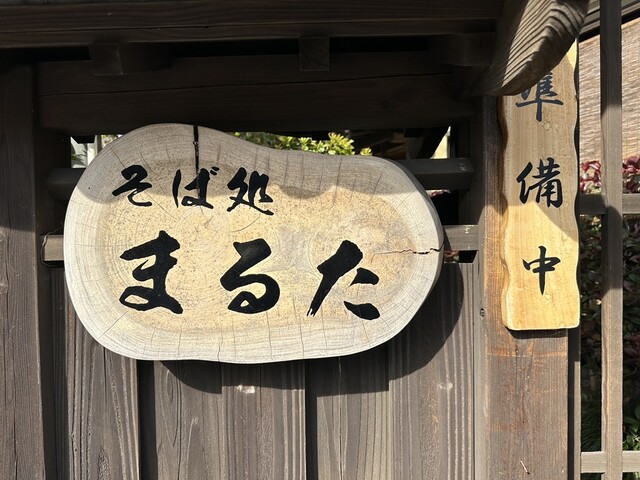 そば処
まるた
準備中